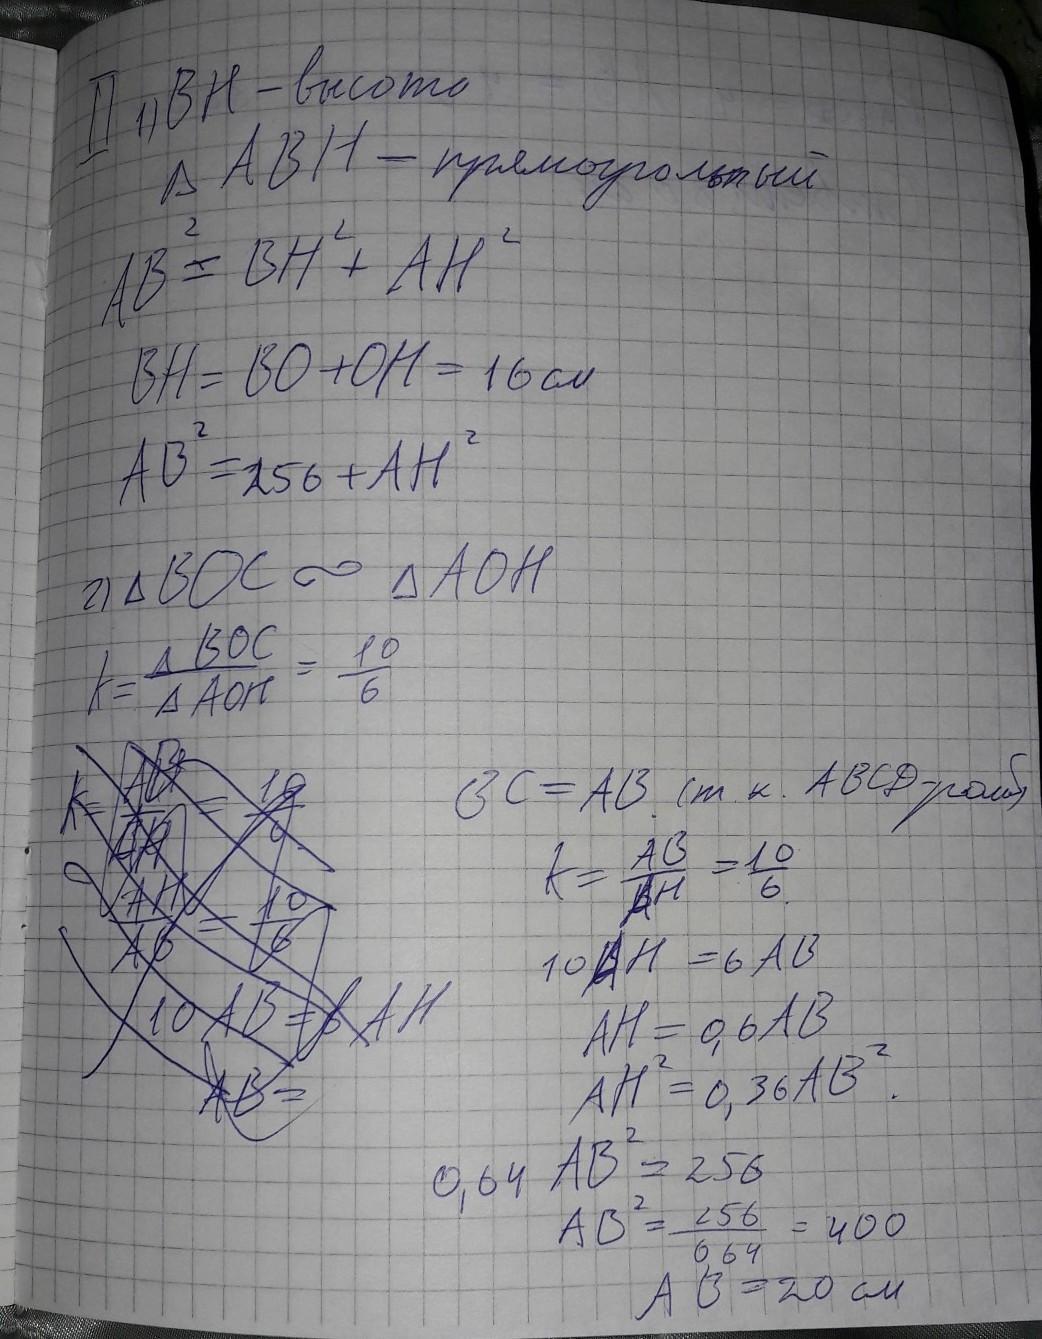 II 1) BH – высота
Δ ABH – прямоугольный
AB² = BH² + AH²
BH = BO + OH = 16 см
AB² = 256 + AH²
2) Δ BOC ∾ Δ AOH
k = Δ BOC / Δ AOH = 10/6
10 AB = 6 AH
AB =
BC = AB (т.к. ABCD – ромб)
k = AB/AH = 10/6
10 AH = 6 AB
AH = 0,6 AB
AH² = 0,36 AB².
0,64 AB² = 256
AB² = 256/0,64 = 400
AB = 20 см